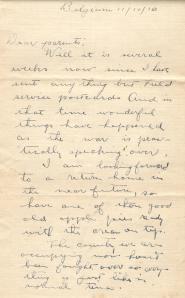 Belgium 11/12/18
Dear parents;
Well it is several
weeks now since I have
sent anything but field
service postcards And in
that time wonderful
things have happened
as the war is prac-
tically speaking over
I am looking forward
to a return home in
the near future, so
have one of those good
old apple pies ready
with the cream on top.
The country we are
occupying now hasn't
been fought over so every
thing is just like in
normal times.